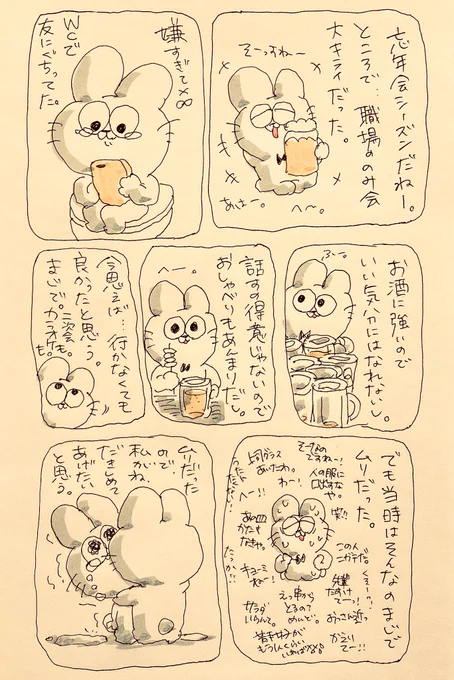 忘年会シーズンだねー。
ところで…職場ののみ会
大キライだった。
そーっすねー
あはー。
へー。
嫌すぎて××
WCで
友にぐちってた。
お酒に強いので
いい気分にはなれないし。
ふー。
話すの得意じゃないので
おしゃべりもあんまりだし。
へー。
今思えば…行かなくても
良かったと思う。
まじで。二次会
カラオケも。
でも当時はそんなのまじで
ムリだった。
そーなの
ですねー!
人の服に
口だすな
や。
上司グラス
あいたわ。
わー!
へー!!
笑!!
この人
ニガテだ。
あの皿
かたも
なきゃ。
先輩
たすけ
てー!
キョーミ
ねー!
えっ串から
とるの?
めんど。
おっこん近っ
サラダ
いらんて。
かえり
てー!!
ムリだった
ので、
私がね、
だきしめて
あげたい
と思う。